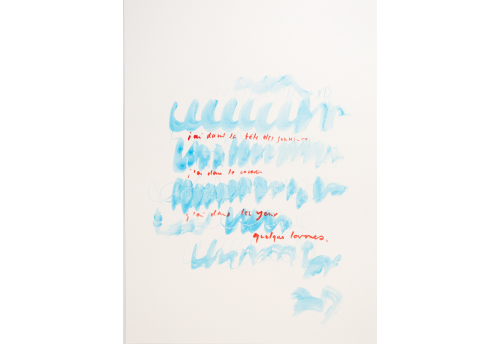 j'ai dans la tête des
j'ai dans le coeur
j'ai dans les yeux
quelques larmes.